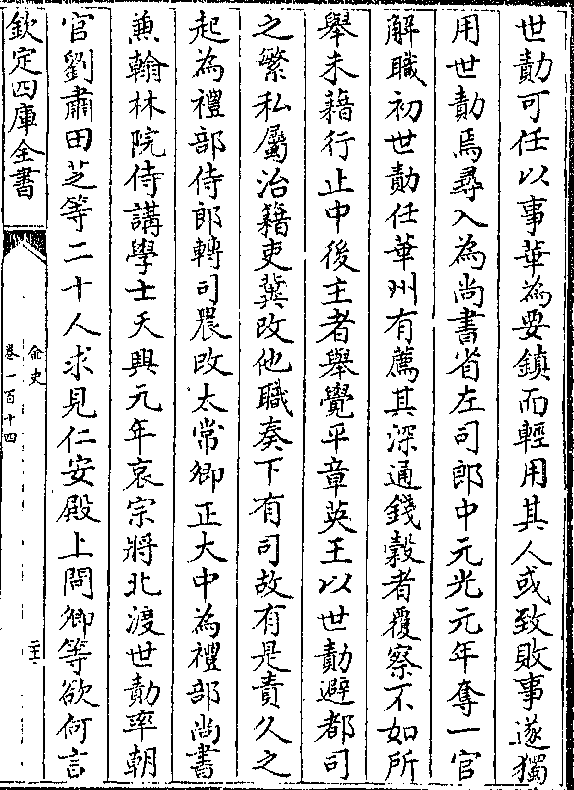 世勣可任以事華為要鎮而輕用其人或致敗事遂獨
用世勣焉尋入為尚書省左司郎中元光元年奪一官
解職初世勣任華州有薦其深通錢穀者覆察不如所
舉未藉行止中後主者舉覺平章英王以世勣避都司
之繁私屬治籍吏冀改他職奏下有司故有是責久之
起為禮部侍郎轉司農改太常卿正大中為禮部尚書
兼翰林院侍講學士天興元年哀宗將北渡世勣率朝
官劉肅田芝等二十人求見仁安殿上問卿等欲何言
欽定四庫全書
金史
卷一百十四